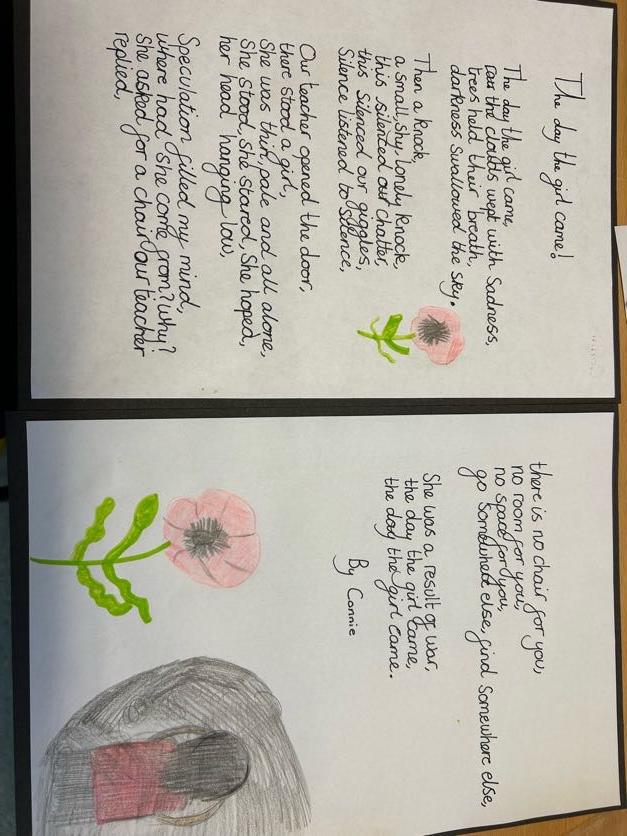 The day the girl came!
The day the girl came,
the clouds wept with Sadness,
trees held their breath,
darkness Swallowed the sky.
Then a knock,
a small, shy, lonely knock,
this silenced our chatter,
this Silenced our giggles,
Silence listened to silence,
Our teacher opened the door,
there stood a girl,
She was thin, pale and all alone,
She stood, She stared, She hoped,
her head hanging low,
Speculation filled my mind,
where had she come from? why?
She asked for a chair our teacher
replied,
there is no chair for you,
no room for you,
no space for you,
go Somewhere else, find Somewhere else,
She was a result of war,
the day the girl came,
the day the girl came.
By Connie